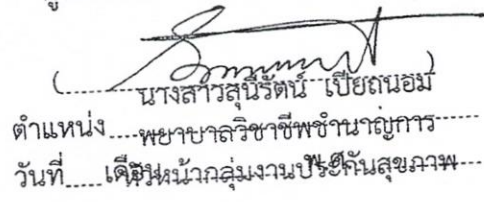 (......นางสาวสุนีรัตน์ เปียถนอม......)
ตำแหน่ง......พยาบาลวิชาชีพชำนาญการ
วันที่......เดือน หัวหน้ากลุ่มงานประกันสุขภาพ พ.ศ.